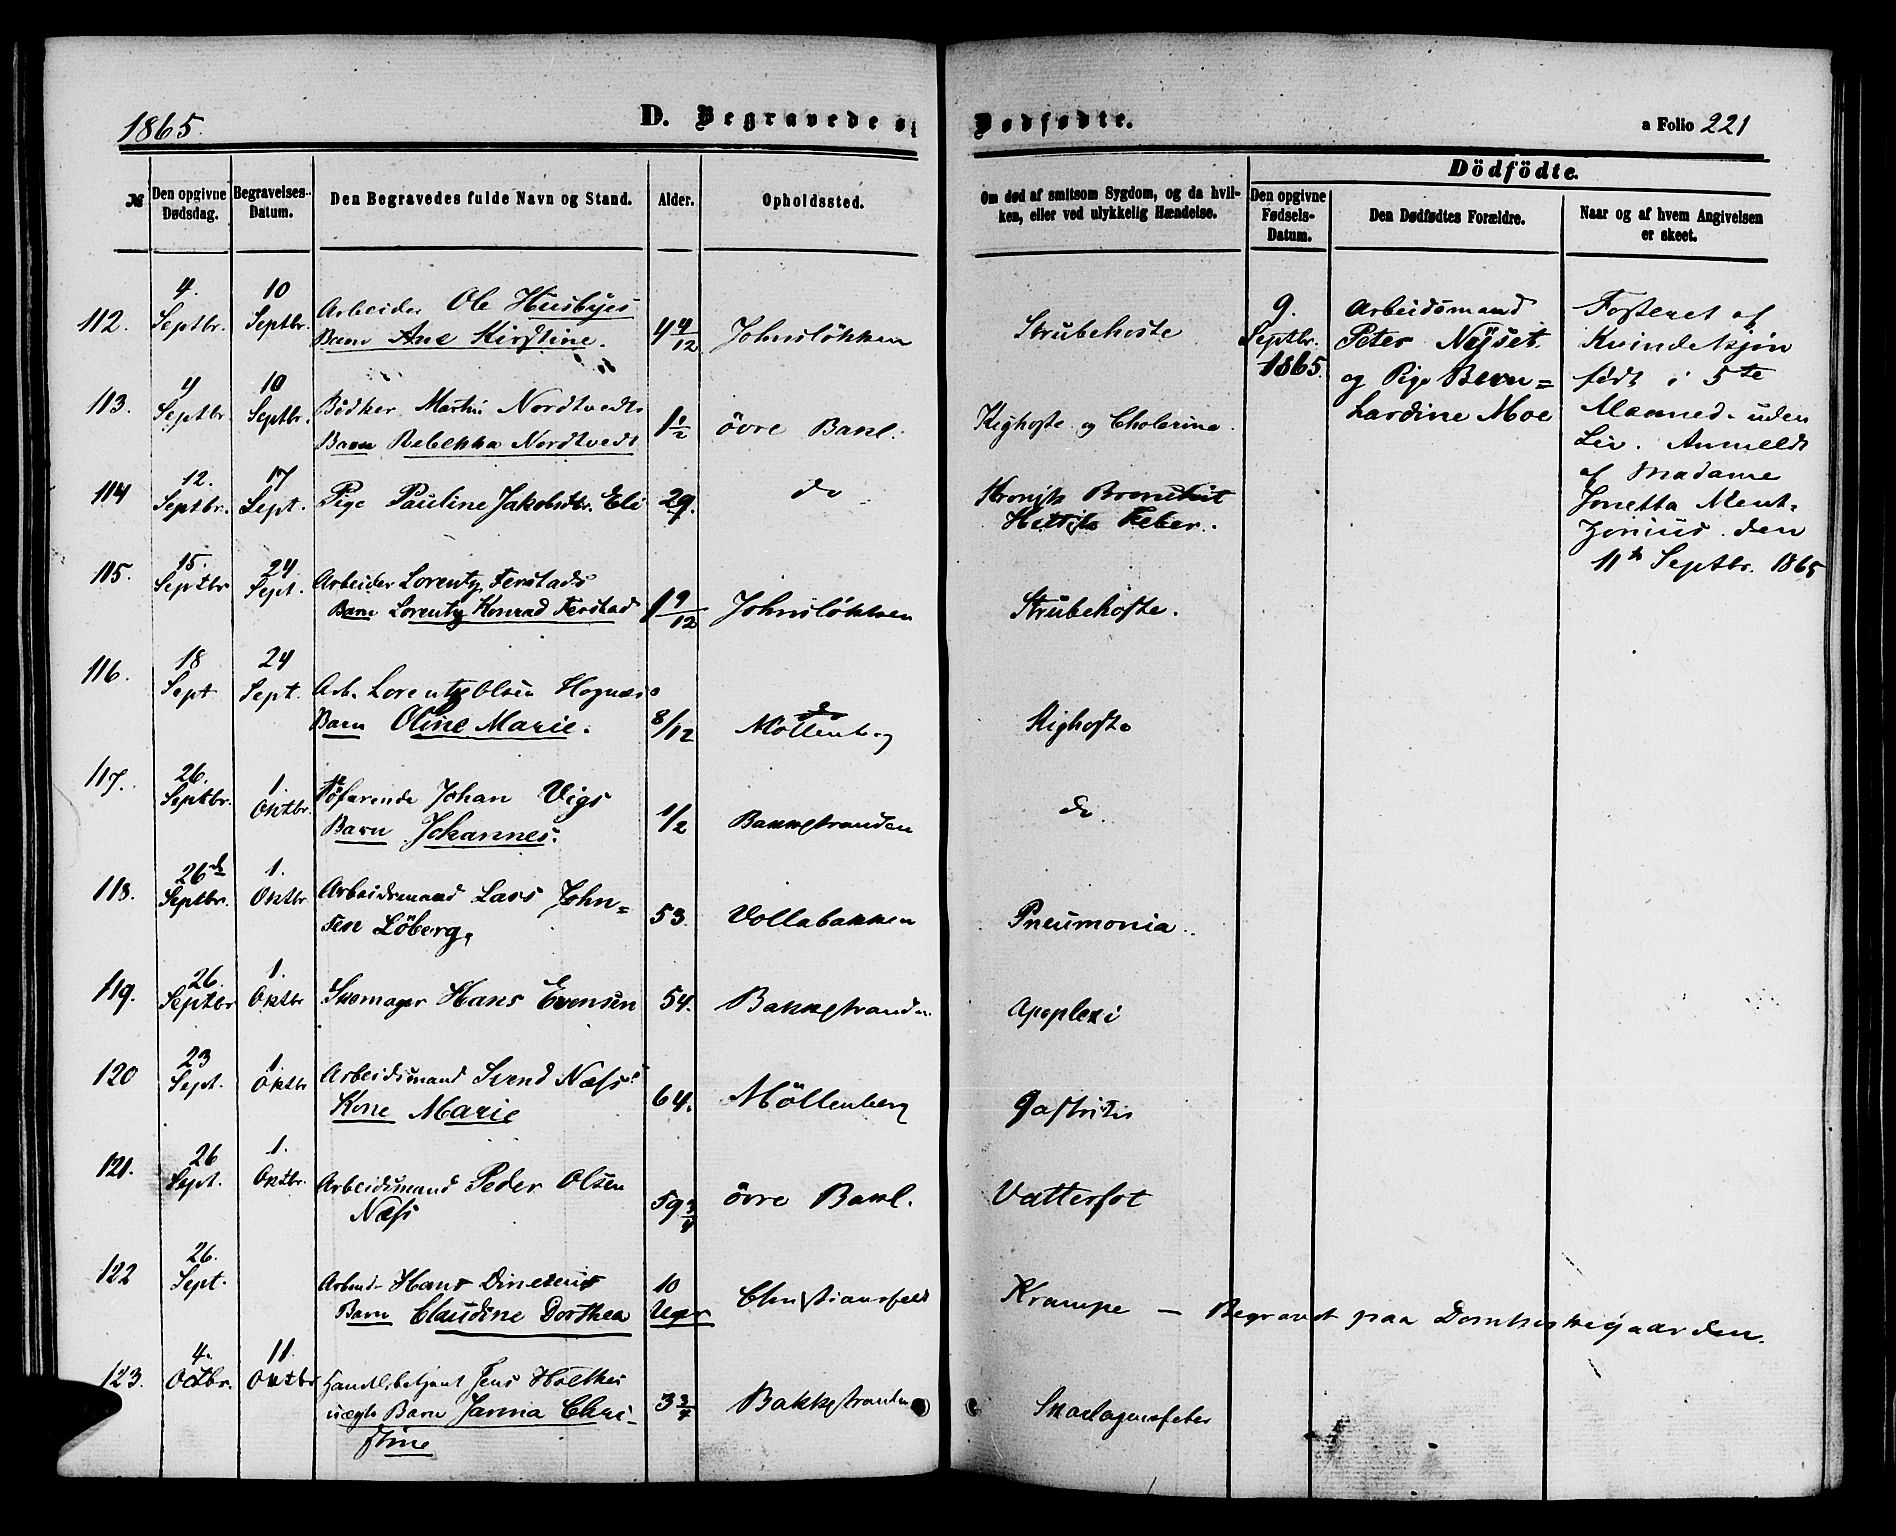 1865.
D. Begravede o
Dødfødte.
a Folio 221
№
Den opgivne Dødsdag.
Begravelses-Datum.
Den Begravedes fulde Navn og Stand.
Alder.
Opholdssted.
Om død af smitsom Sygdom, og da hvil-
ken, eller ved ulykkelig Hændelse.
Dödfödte.
Den opgivne Fødsels-Datum.
Den Dødfødtes Forældre.
Naar og af hvem Angivelsen er skeet.
112. 4. Septbr. 10 Septbr. Arbeider Ole Husbyes
Barn Ane Kirstine. 4 4/12 Johnsløkken Strubehoste
9. Septbr. 1865.
Arbeidsmand
Peter Nÿset
og Pige Bern=
hardine Moe
Fosteret af
Kvindekjøn
født i 5te
Maaned uden
Liv. Anmeldt
af Madame
Jonetta Ment-
zonius den
11te Septbr. 1865
113. 4 Septbr. 10 Septbr. Bödker Martin Nordtvedts
Barn Rebekka Nordtvedt 1 1/2 övre Bakl. Kighoste og Cholerine.
114 12. Septbr. 17 Sept. Pige Pauline Jakobsdtr. Eli 29. do Kronisk Bronchit
Hektisk Feber.
115. 15. Septbr 24 Sept. Arbeider Lorentz Ferstads
Barn Lorentz Konrad Ferstad 1 9/12 Johnsløkken Strubehoste.
116. 18 Sept 24 Sept. Arb. Lorentz Olsen Hognæs
Barn Oline Marie. 8/12 Möllenberg Kighoste
117. 26. Septbr. 1. Oktbr. Söfarende Johan Vigs
Barn Johannes. 1/2 Bakkestranden do
118. 26de Septbr. 1. Oktbr Arbeidsmand Lars John=
sen Löberg. 53. Vollabakken Pneumonia.
119. 26. Septbr 1. Oktbr Skomager Hans Evensen 54. Bakkestranden Apoplexi
120 23 Sept. 1. Oktbr Arbeidsmand Svend Næss'
Kone Marie 64. Möllenberg Gastritis
121. 26 Sept. 1. Oktbr. Arbeidsmand Peder Olsen
Næss 59 3/4 övre Bakl. Vattersot
122 26. Sept. Arbeid. Hans Dinesens
Barn Claudine Dorthea 10 Uger Christiansfeld Krampe — Begravet paa Domkirkegaarden.
123. 4. Octbr. 11. Oktbr Handelsbetjent Jens Holthes
uægte Barn Janna Chri-
stine 3 3/4 Bakkestranden Skarlagensfeber